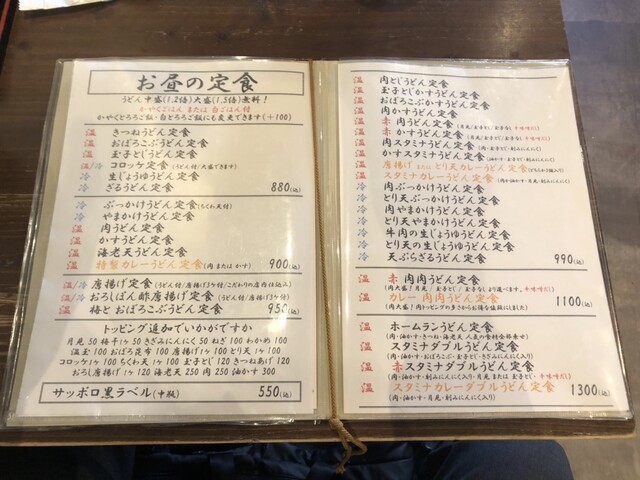 お昼の定食
うどん中盛(1.2倍)大盛(1.5倍)無料！
かやくごはん または 白ごはん付
かやくとろろご飯・白とろろご飯にも変更できます(+100)
温 きつねうどん定食
温 おぼろこぶうどん定食
温 玉子とじうどん定食
温/冷 コロッケ定食(うどん付/大盛できます)
冷 生じょうゆうどん定食
冷 ざるうどん定食 880(込)
冷 ぶっかけうどん定食(ちくわ天付)
冷 やまかけうどん定食
温 肉うどん定食
温 かすうどん定食
温 海老天うどん定食
温 特製カレーうどん定食(肉またはかす) 900(込)
温/冷 唐揚げ定食(うどん付/唐揚げ3ヶ付/こだわりの店内仕込み)
温/冷 おろしぽん酢唐揚げ定食(うどん付/唐揚げ3ヶ付)
温 梅とおぼろこぶうどん定食 950(込)
トッピング追加でいかがですか
月見 50 梅干 1ヶ 50 きざみにんにく 50 ねぎ 100 わかめ 100
温玉 100 おぼろ昆布 100 唐揚げ 1ヶ 100 とり天 1ヶ 100
コロッケ 1ヶ 100 ちくわ天 1ヶ 100 玉子とじ 120 きつねあげ 120
おろし(唐揚げ) 120 海老天 250 肉 250 油かす 300
サッポロ黒ラベル(中瓶) 550(込)
温 肉とじうどん定食
温 玉子とじかすうどん定食
温 おぼろこぶかすうどん定食
温 肉かすうどん定食
温 赤 肉うどん定食
温 赤 かすうどん定食
温 肉スタミナうどん定食
温 かすスタミナうどん定食
温 唐揚げ または とり天カレーうどん定食
温 スタミナカレーうどん定食
冷 肉ぶっかけうどん定食
冷 とり天ぶっかけうどん定食
冷 肉やまかけうどん定食
冷 とり天やまかけうどん定食
冷 牛肉の生じょうゆうどん定食
冷 とり天の生じょうゆうどん定食
冷 天ぷらざるうどん定食 990(込)
温 赤 肉肉うどん定食
温 カレー 肉肉うどん定食 1100(込)
温 ホームランうどん定食
温 スタミナダブルうどん定食
温 赤スタミナダブルうどん定食
温 スタミナカレーダブルうどん定食
(肉・油かす・月見・きざみにんにく入り) 1300(込)